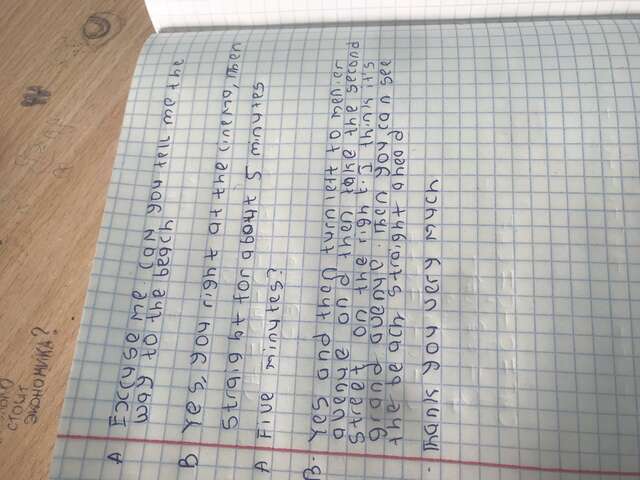 A Exccyse me. Can you tell me the
way to the beach
B Yes, you right at the cinema, then
straight for about 5 minutes
A Five minutes?
B. Yes and then turn left to menier
avenye and then take the second
street on the right. I think it's
grand avenye. Then you can see
the beach straight ahead
- Thank you very much
стоит
экономика?